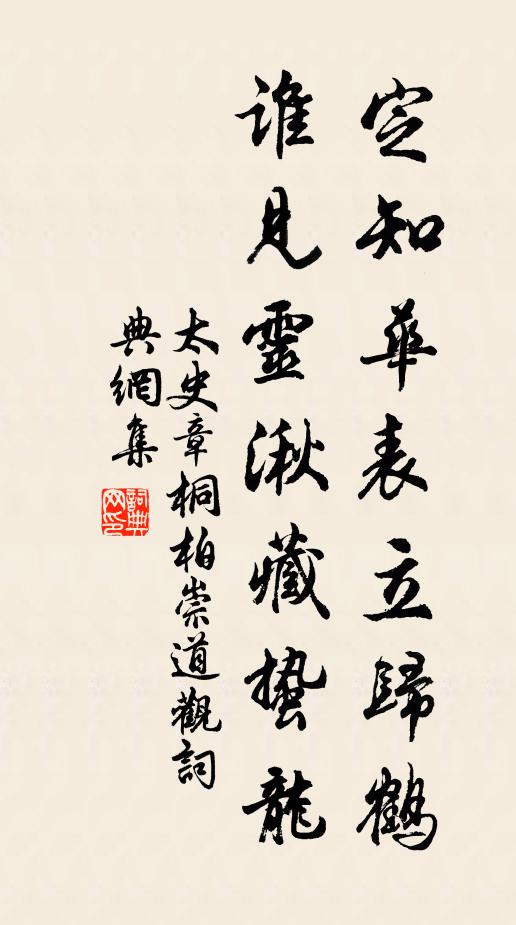 定知華表立歸鶴
誰見靈湫藏蟄龍
太史章桐柏崇道觀詞
典網集
詞典網印